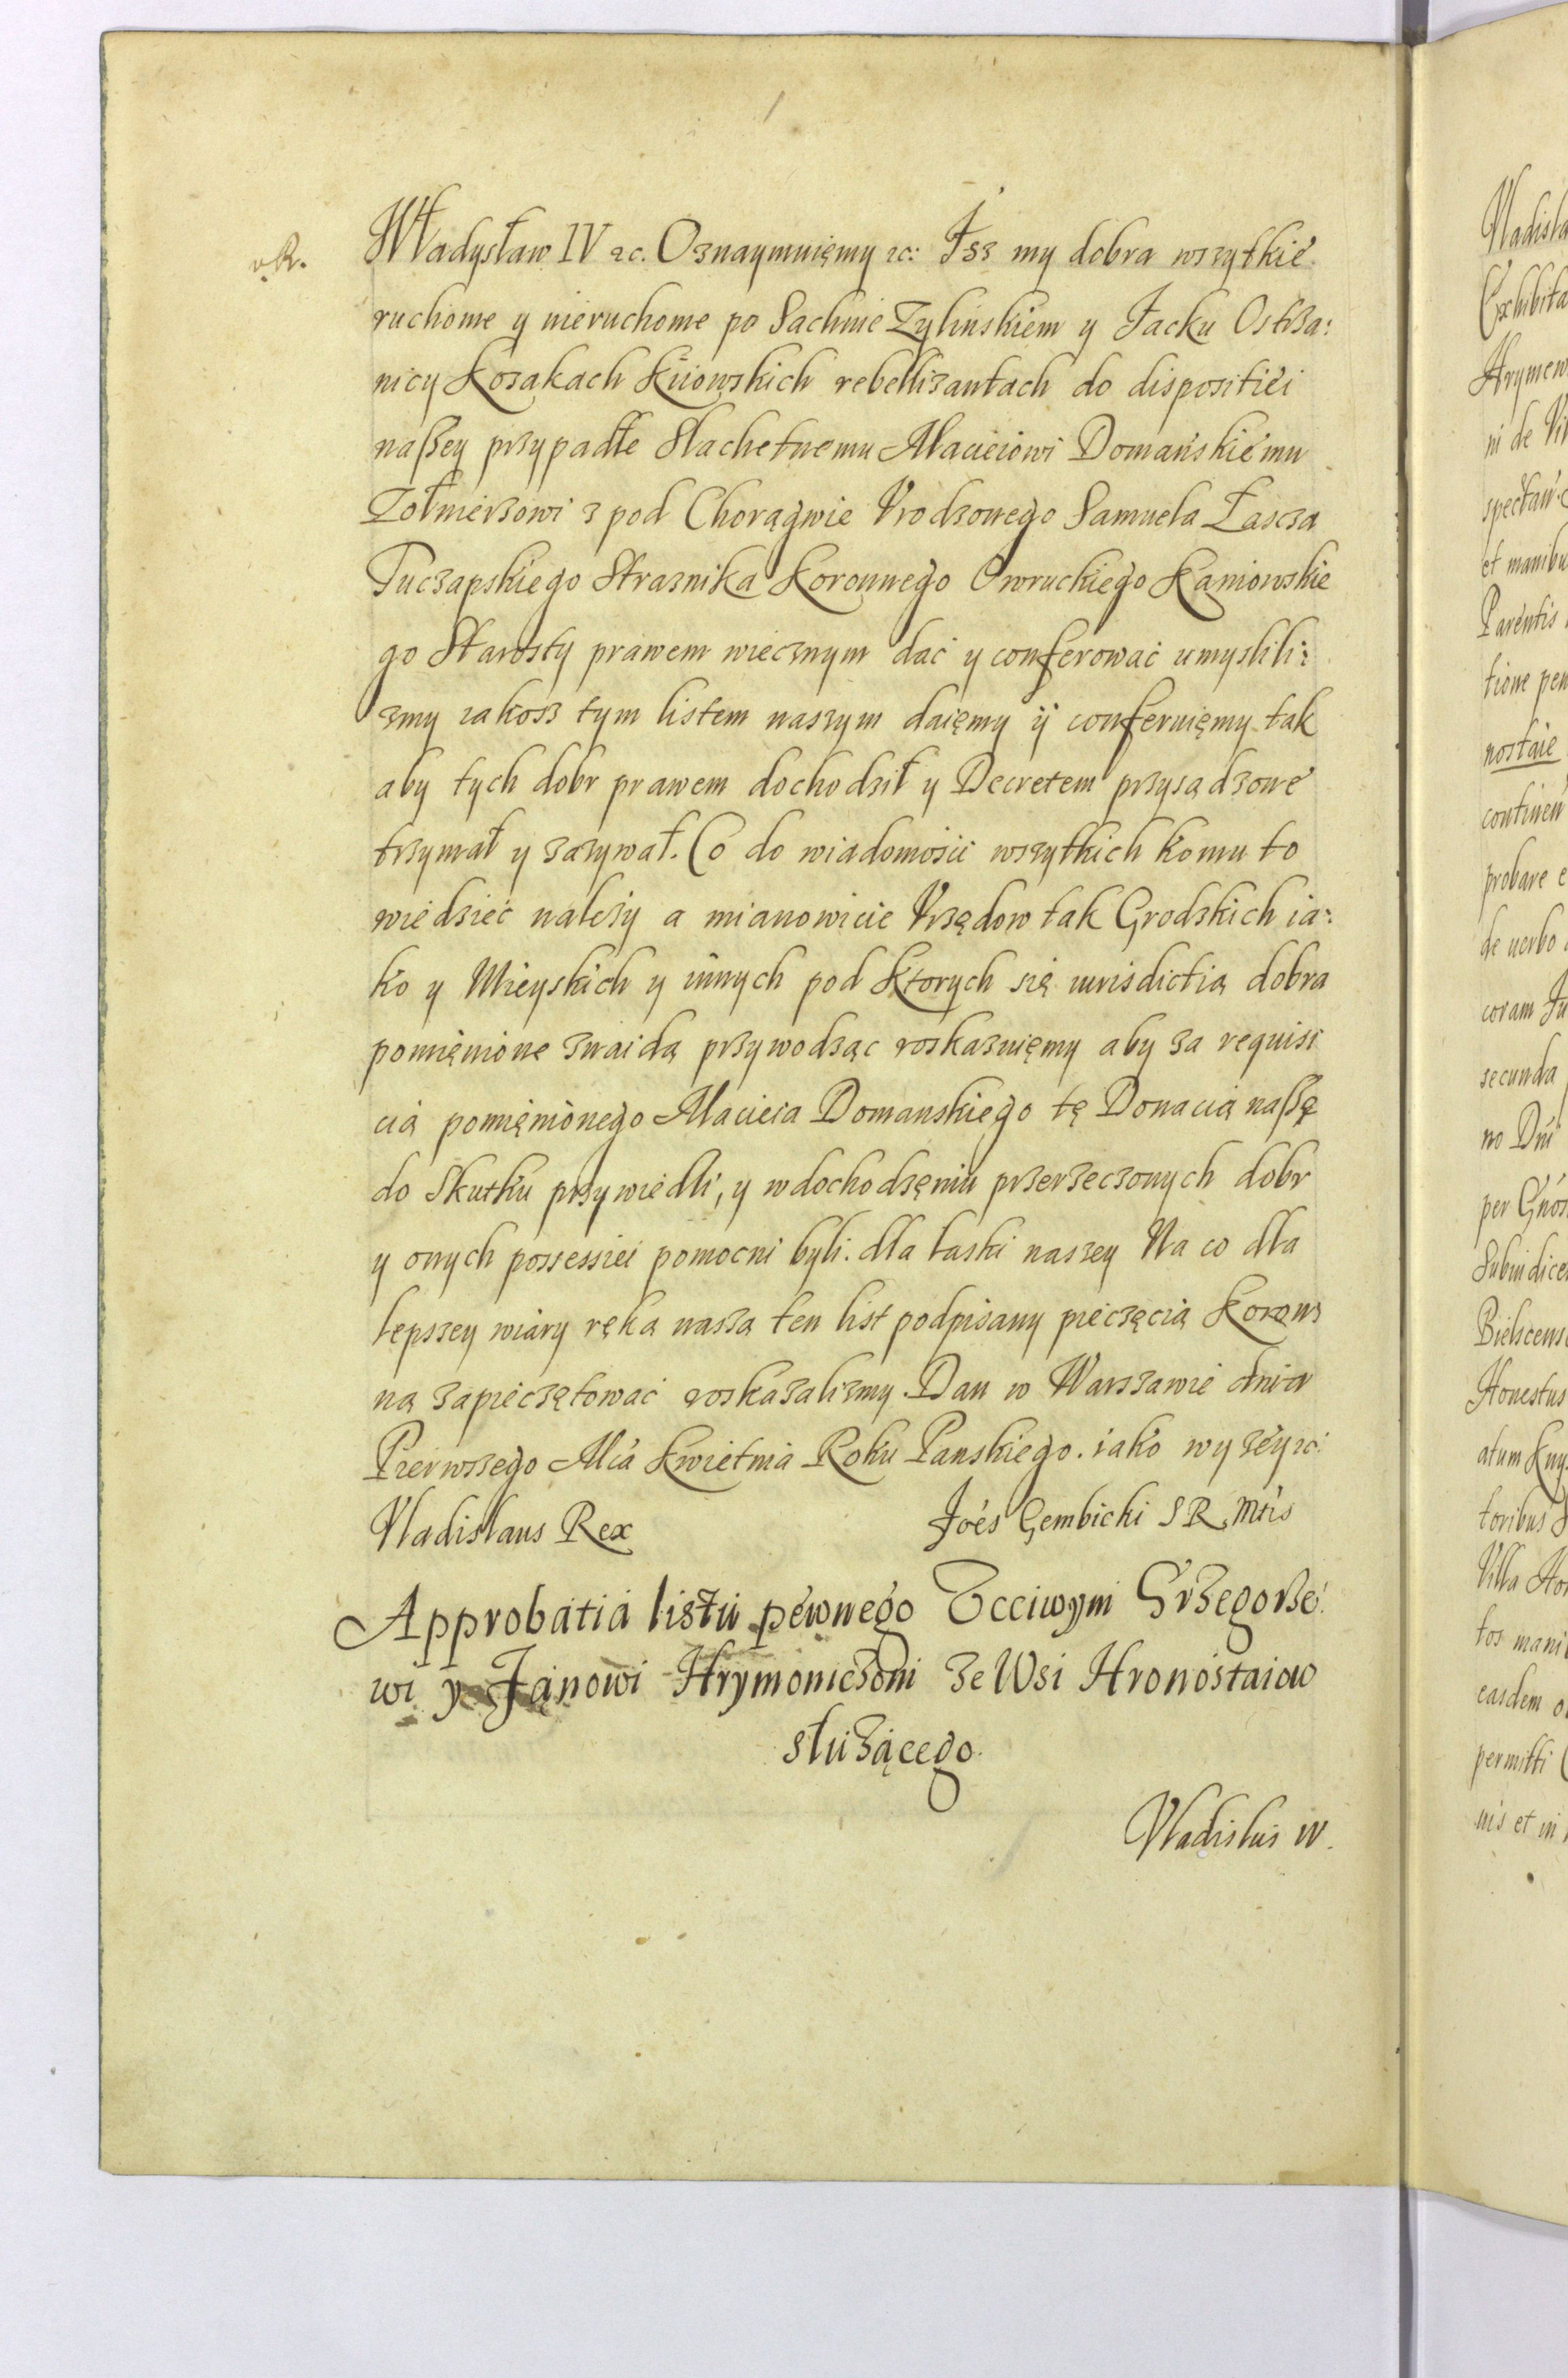 R.
Władysław IV ꝛc. Oznaymuięmy ꝛc: Isz my dobra wszytkie
ruchome y nieruchome po Sachnie Zylinskiem y Jacku Ostrza:
nicy Kozakach Kiiowskich rebellizantach do dispositiei
naszey przypadłe Slachetnemu Macieiowi Domańskiemu
Zołnierzowi z pod Chorągwie Vrodzonego Samuela Łascza
Tuczapskiego Straznika Koronnego Owruckiego Kaniowskie
go Starosty prawem wiecznym dać y conferować umyslili:
zmy iakosz tym listem naszym daięmy ÿ conferuięmy tak
aby tych dobr prawem dochodził y Decretem przysądzone
trzymał y zazywał. Co do wiadomości wszytkich komu to
wiedzieć należy a mianowicie Vrzędow tak Grodzkich ia:
ko y Mieyskich y innych pod ktorych się iurisdictią dobra
pomięnione znaidą przywodząc roskazuięmy aby za requisi
cią pomięnionego Macieia Domanskiego tę Donacią naszę
do skutku przywiedli, y w dochodzęniu przerzeczonych dobr
y onych possessiei pomocni byli. dla łaski naszey Na co dla
lepszey wiary ręką naszą ten list podpisany pieczęcią Koron
ną zapieczętować roskazalizmy. Dan w Warszawie dnia
Pierwszego Mca Kwietnia Roku Panskiego. iako wyzey ꝛc:
Vladislaus Rex
Joés Gembicki S R Mtis
Approbatia listu pewnego Vcciwym Grzegorze:
wi y Janowi Hrymoniczom ze Wsi Hronostaiow
służącego.
Vladislus IV.
Vladisla
Exhibita
Hrymew
ni de
et manibu
Parentis
tione pen
nostaie
continen
probare e
de verbo
coram Ju
secunda
no Dni
per Gnos
Subiudice
Bielscens
Honestus
atum Kny
toribus
Villa Hro
tos mani
easdem o
permitti
nis et in